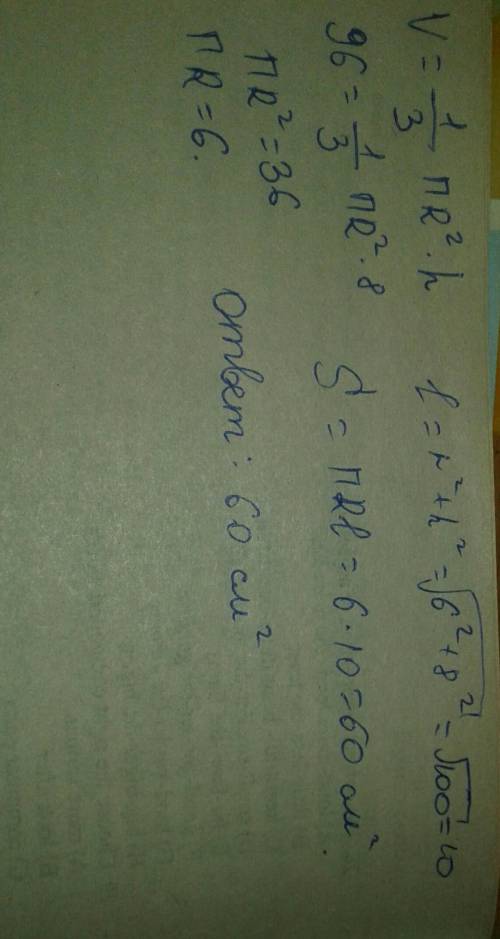 V = 1/3 ПR² · h
96 = 1/3 ПR² · 8
ПR² = 36
ПR = 6.
l = r² + h² = √6² + 8² = √100 = 10
S = ПRl = 6 · 10 = 60 см².
Ответ: 60 см²